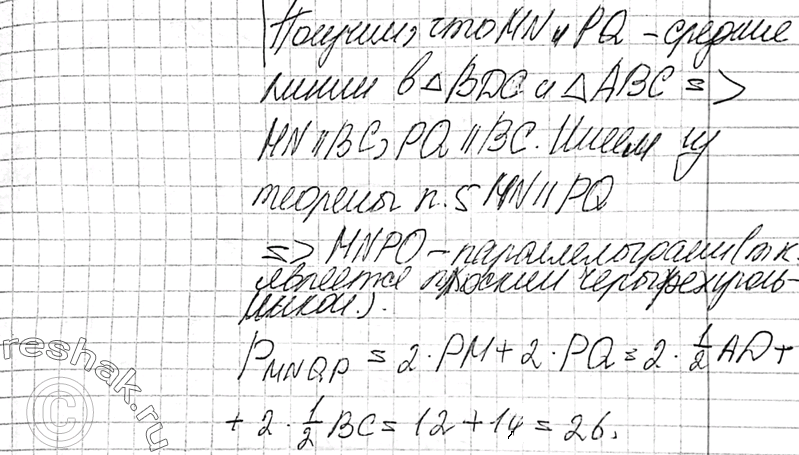 Получим, что MN и PQ – средние
линии в △BDC и △ABC =>
MN || BC, PQ || BC. Имеем из
теоремы п. 5 MN || PQ
=> MNPQ – параллелограмм (т.к.
является плоским четырехуголь-
ником.).
P_MNQP = 2 · PM + 2 · PQ = 2 · 1/2 AD +
+ 2 · 1/2 BC = 12 + 14 = 26.
reshak.ru
©